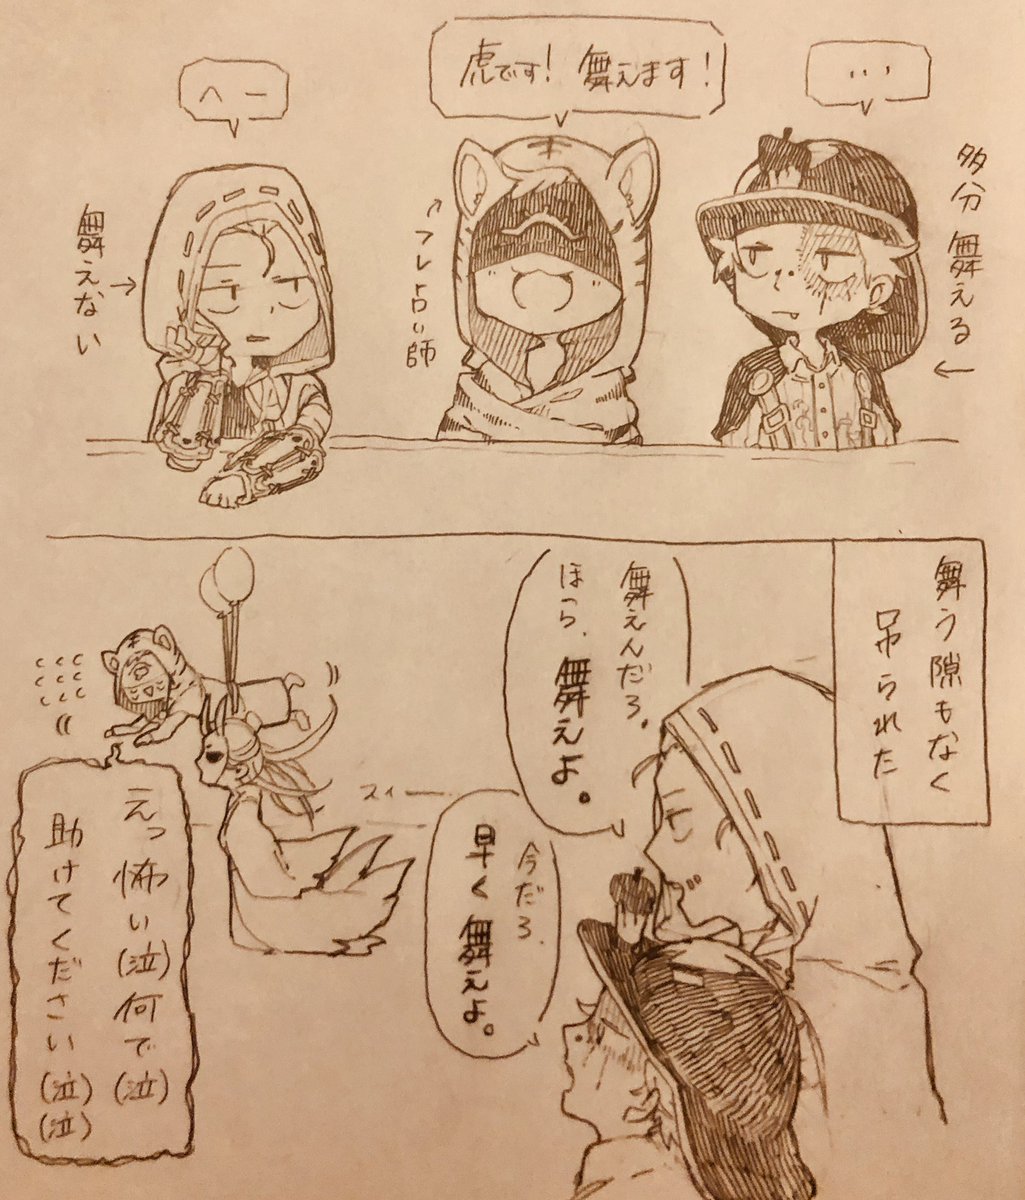 ・・・
多分 舞える
虎です！ 舞えます！
へー
舞えない
舞う隙もなく
吊られた
舞えんだろ。
ほら、舞えよ。
今だろ、
早く舞えよ。
スィー
えっ怖い(泣)何で(泣)
助けてください(泣)
(泣)